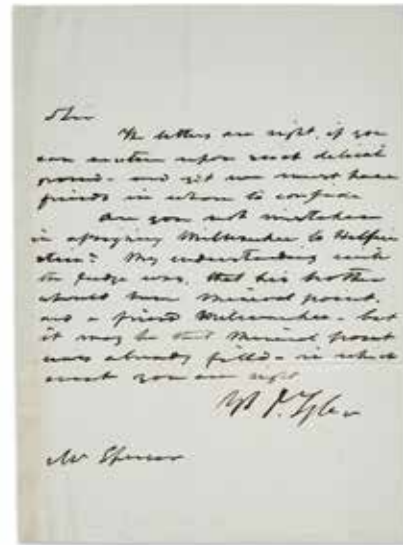 Sir
The letters are right, if you
can venture upon such delicate
ground - and yet we must have
friends in whom to confide
Are you not mistaken
in assigning Milwaukee to Helfen
stein? My understanding with
the Judge was, that his brother
should have Mineral point,
and a friend Milwaukee - but
it may be that Mineral point
was already filled - in which
event you are right
J. Tyler
Mr Spencer